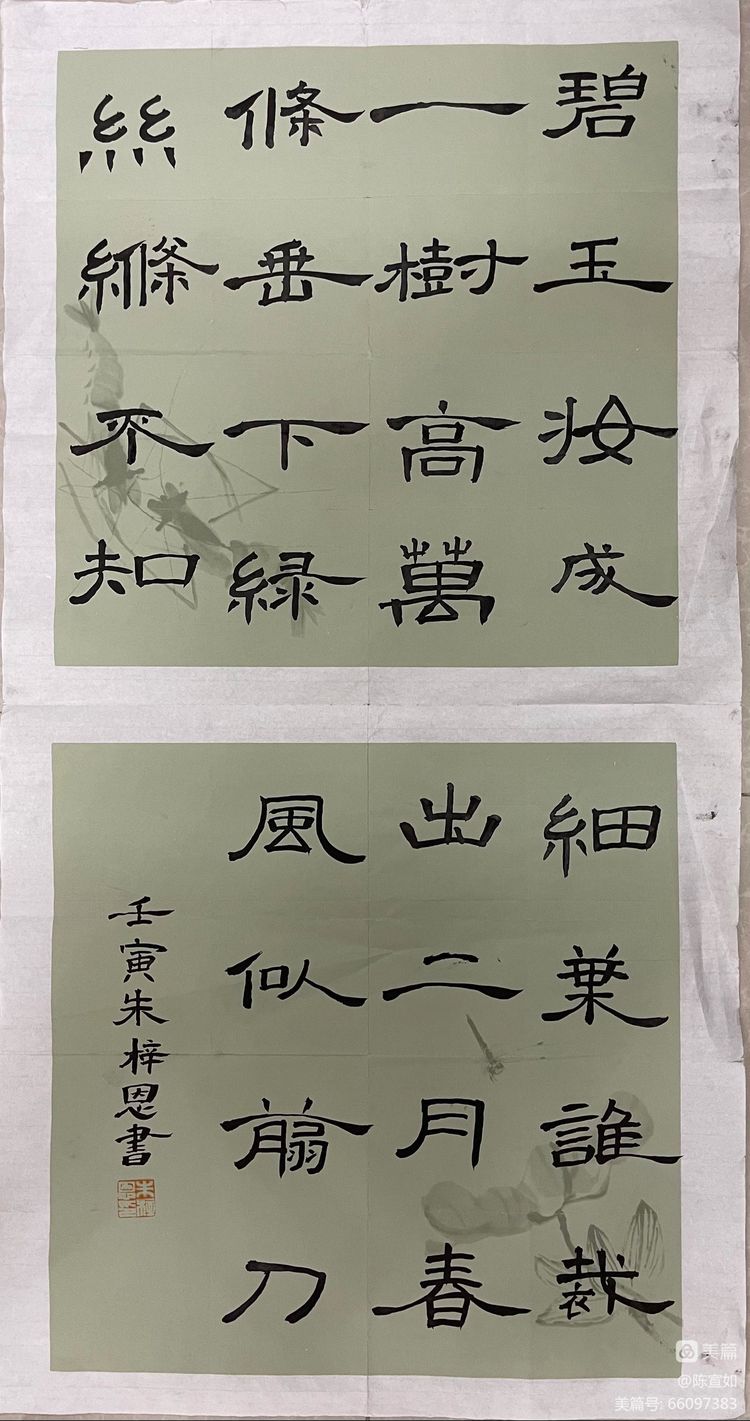 碧玉妝成
一樹高萬
條垂下綠
絲縧不知
細葉誰裁
出二月春
風似翦刀
壬寅朱梓恩書
朱梓恩印
美篇
@陈宣如
美篇号: 66097383